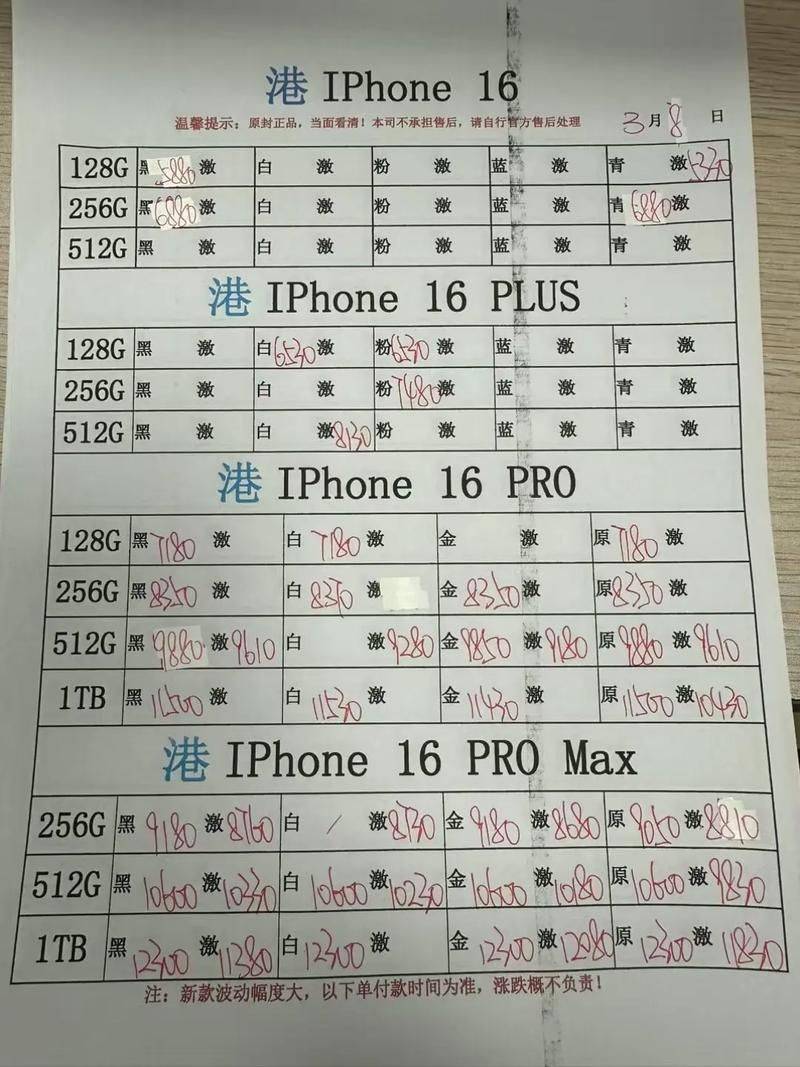 港 IPhone 16
温馨提示: 原封正品，当面看清！本司不承担售后，请自行官方售后处理 3月8日
128G 黑 5880 激 白 激 粉 激 蓝 激 青 激 5330
256G 黑 6880 激 白 激 粉 激 蓝 激 青 6880 激
512G 黑 激 白 激 粉 激 蓝 激 青 激
港 IPhone 16 PLUS
128G 黑 激 白 6530 激 粉 6530 激 蓝 激 青 激
256G 黑 激 白 激 粉 7480 激 蓝 激 青 激
512G 黑 激 白 激 8130 粉 激 蓝 激 青 激
港 IPhone 16 PRO
128G 黑 7180 激 白 7180 激 金 激 原 7180 激
256G 黑 8350 激 白 激 金 8350 激 原 8350 激
512G 黑 9880 激 9610 白 激 9280 金 9850 激 9180 原 9880 激 9610
1TB 黑 11500 激 白 11530 激 金 11430 激 原 11500 激 10430
港 IPhone 16 PRO Max
256G 黑 9180 激 8760 白 / 激 8730 金 9180 激 8680 原 9050 激 8810
512G 黑 10600 激 10330 白 10600 激 10230 金 10600 激 10180 原 10600 激 9830
1TB 黑 12300 激 11380 白 12300 激 金 12300 激 12080 原 12300 激 11830
注: 新款波动幅度大，以下单付款时间为准，涨跌概不负责！